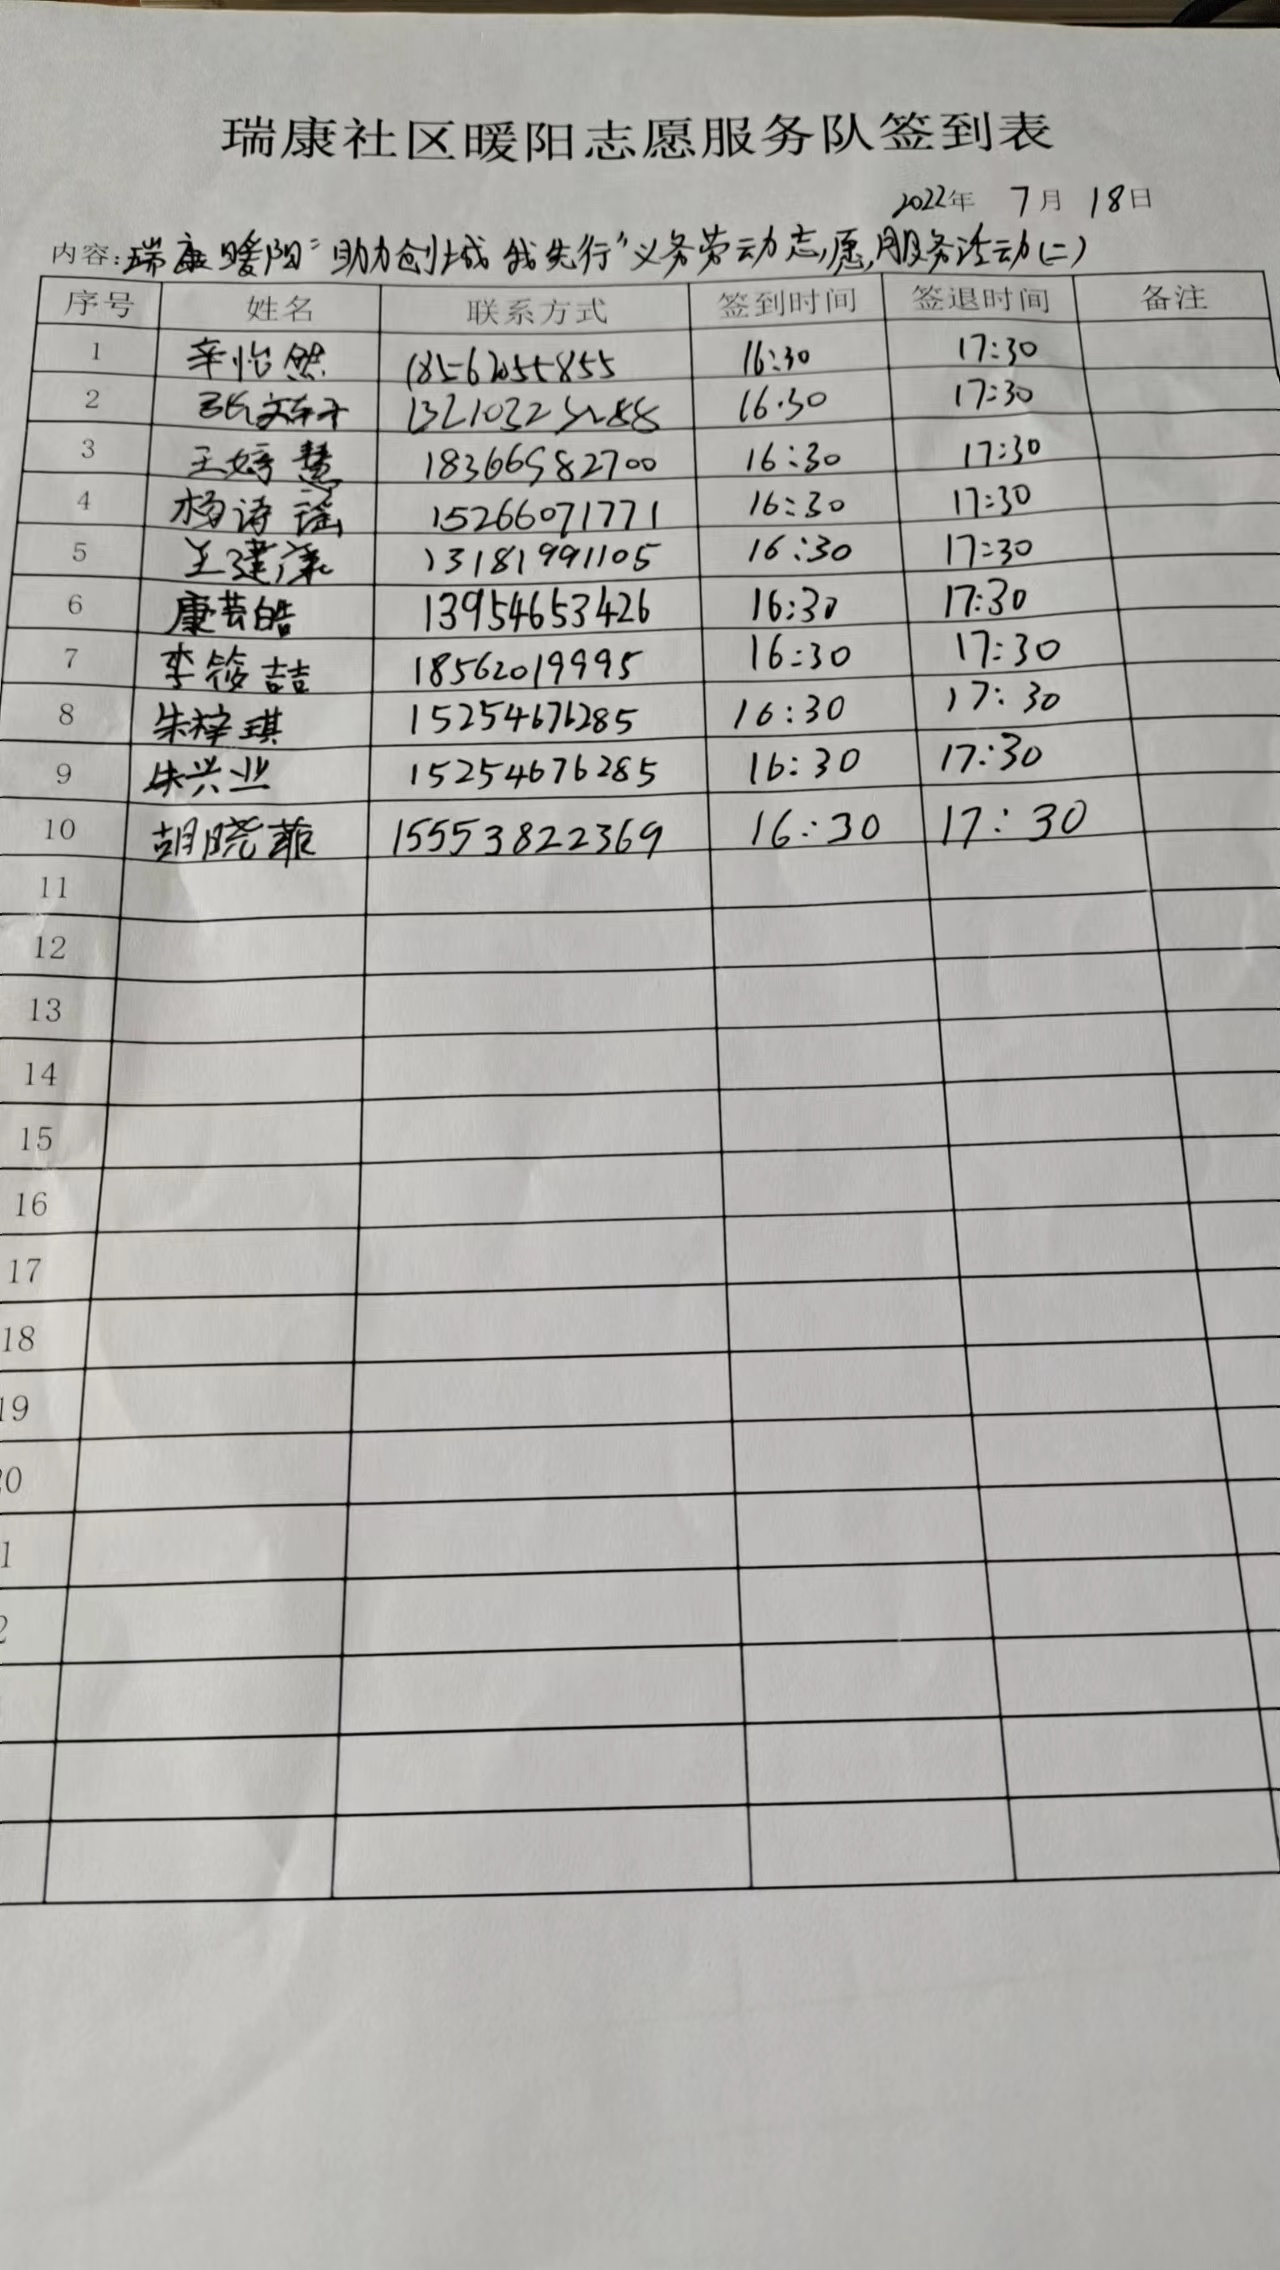 瑞康社区暖阳志愿服务队签到表
2022年 7月 18日
内容:瑞康暖阳"助力创城 我先行"义务劳动志愿服务活动(二)
序号 姓名 联系方式 签到时间 签退时间 备注
1 辛怡然 18562055855 16:30 17:30
2 16:30 17:30
3 王婷慧 18366982700 16:30 17:30
4 杨诗谣 15266071771 16:30 17:30
5 王建康 13181991105 16:30 17:30
6 康芸皓 13954653426 16:30 17:30
7 李筱喆 18562019995 16:30 17:30
8 朱梓琪 15254676285 16:30 17:30
9 朱兴业 15254676285 16:30 17:30
10 胡晓菲 15553822369 16:30 17:30
11
12
13
14
15
16
17
18
19
20
1
2